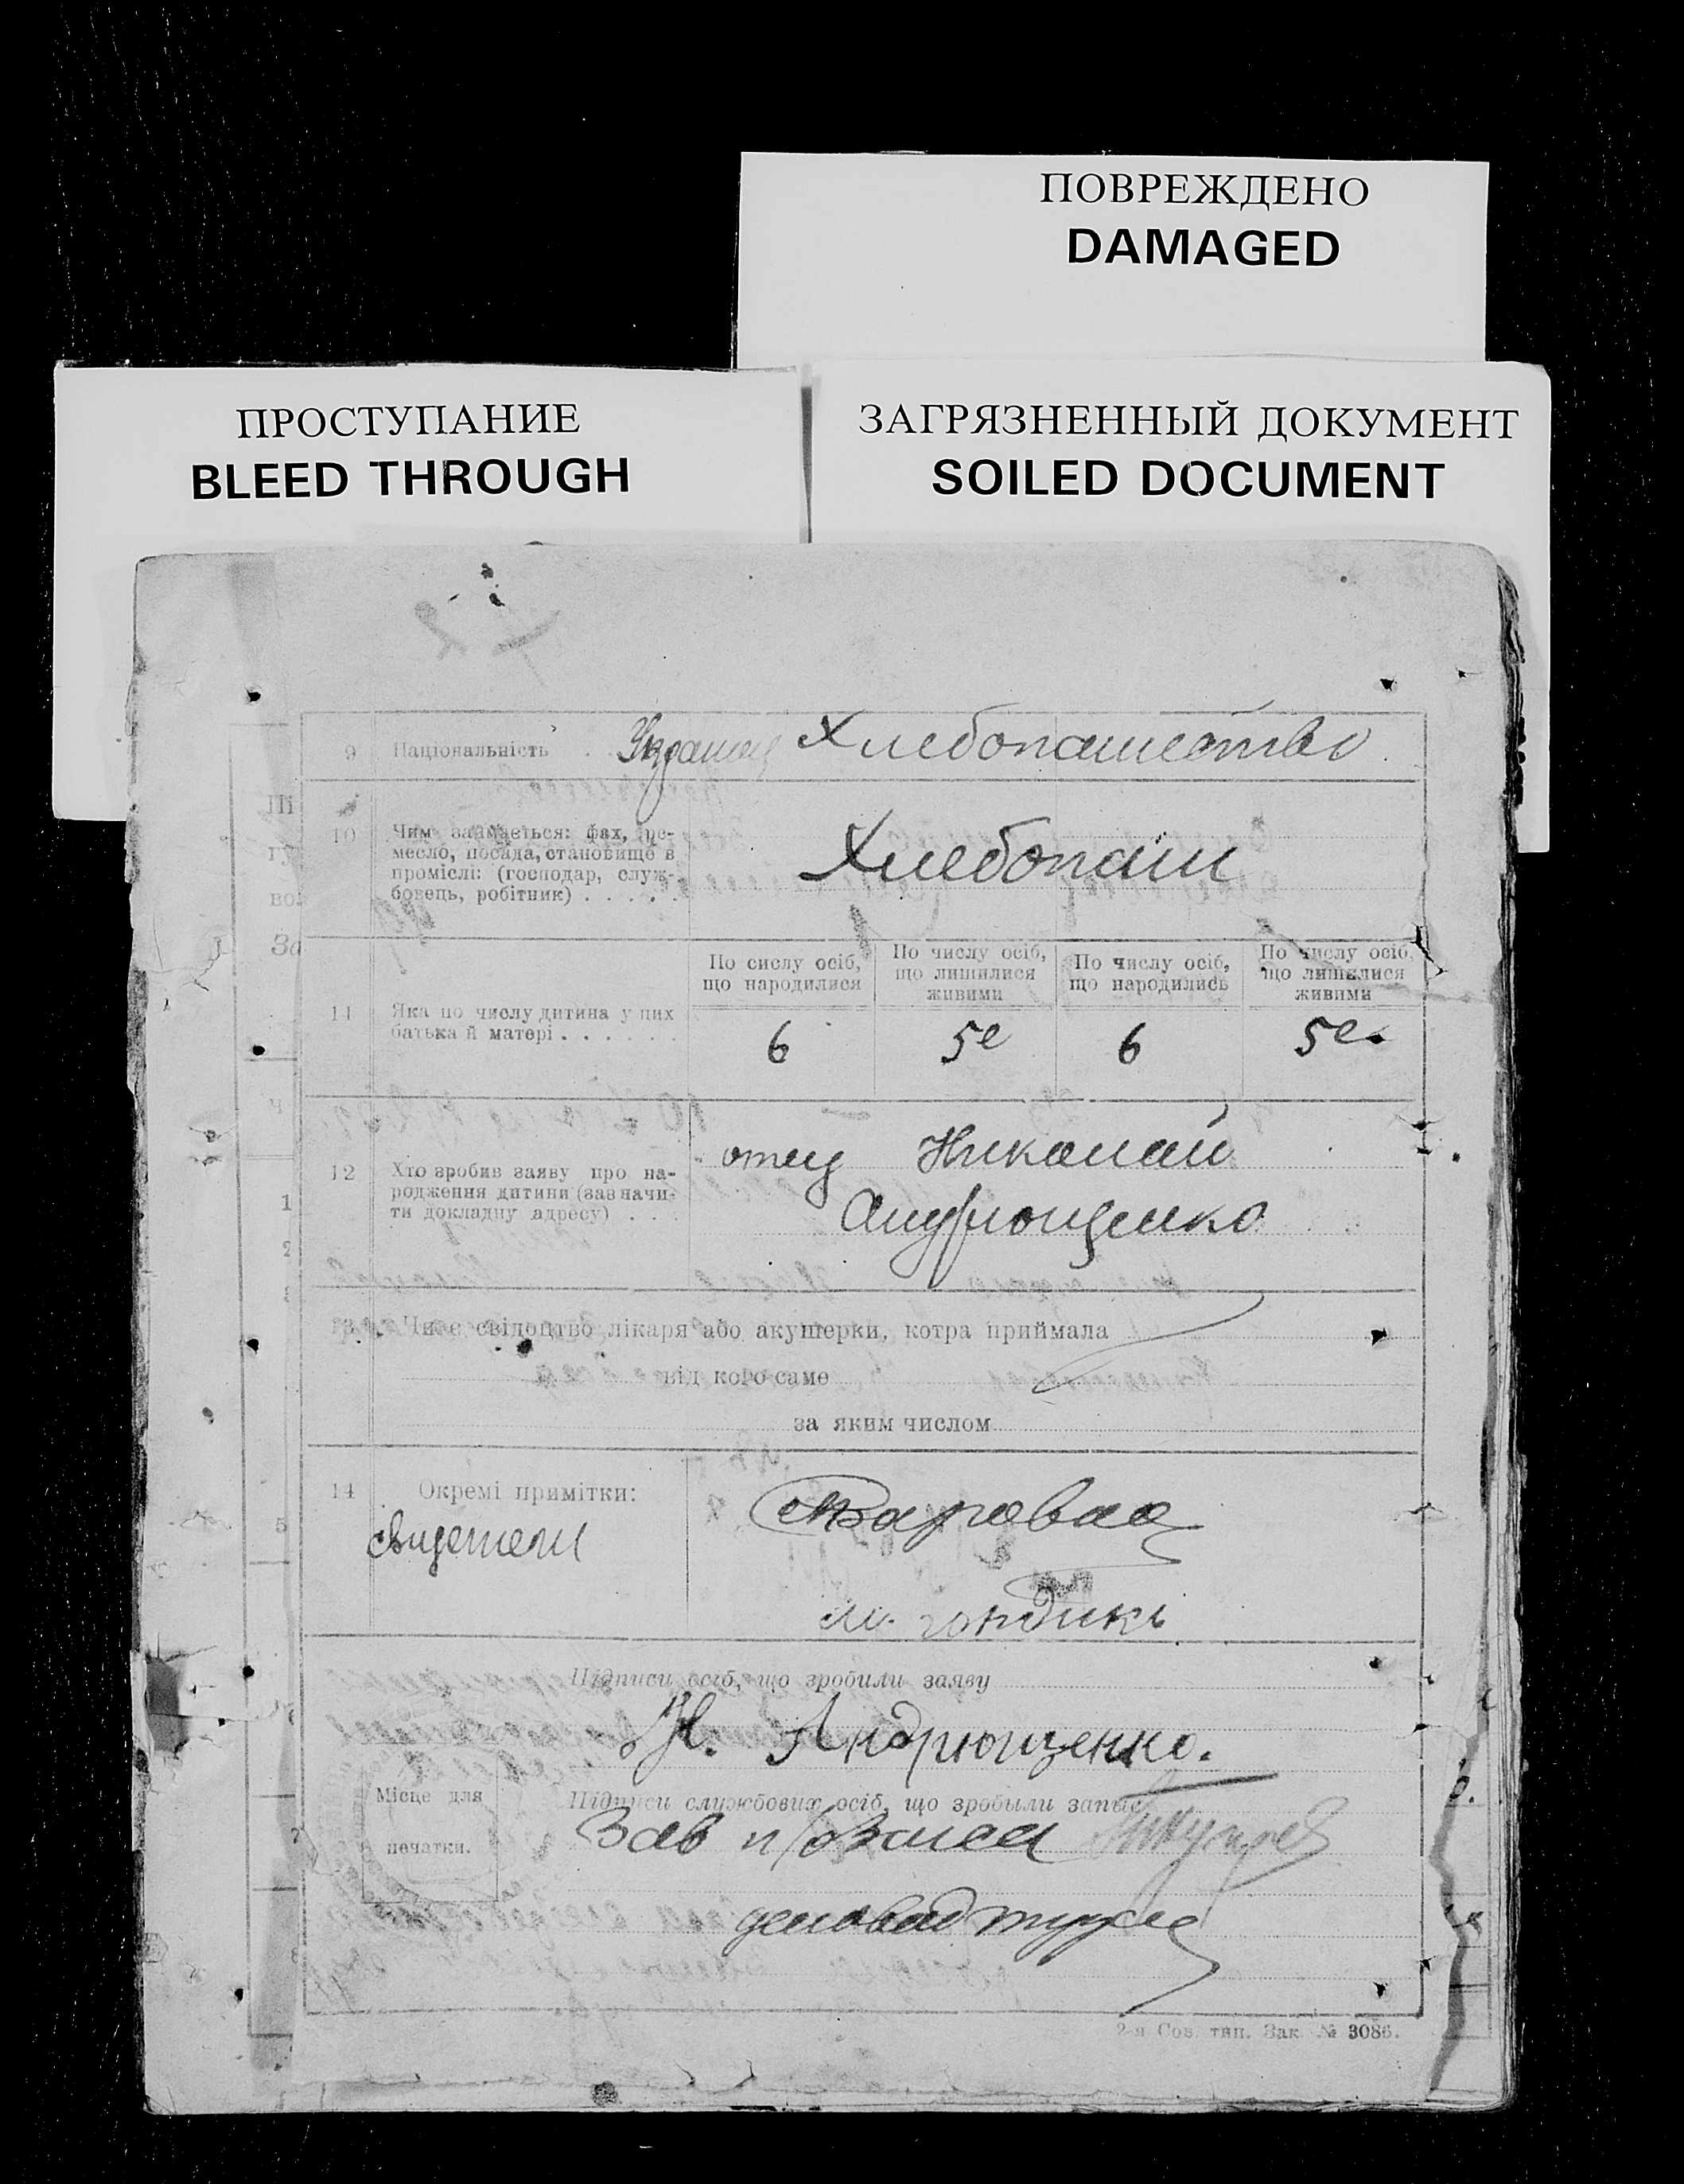 ПОВРЕЖДЕНО
DAMAGED
ПРОСТУПАНИЕ
BLEED THROUGH
ЗАГРЯЗНЕННЫЙ ДОКУМЕНТ
SOILED DOCUMENT
9 Національність . Хлебопашество
10 Чим займається: фах, ре-
месло, посада, становище в
промислі: (господар, служ-
бовець, робітник) . . . . .
Хлебопаш
11 Яка по числу дитина у них
батька й матері . . . . . .
По сислу осіб,
що народилися
По числу осіб,
що лишилися
живими
По числу осіб,
що народились
По числу осіб,
що лишилися
живими
6 5е 6 5е
12 Хто зробив заяву про на-
родження дитини (зазначи-
ти докладну адресу) . . .
отец Николай
Андрющенко
13 Чи є свідоцтво лікаря або акушерки, котра приймала
від кого саме
за яким числом
14 Окремі примітки:
свидетели
Підписи осіб, що зробили заяву
Н. Андрющенко.
Місце для
печатки.
Підписи службових осіб, що зробыли запыс
Зав п/
2-я Сов. тип. Зак. № 3086.